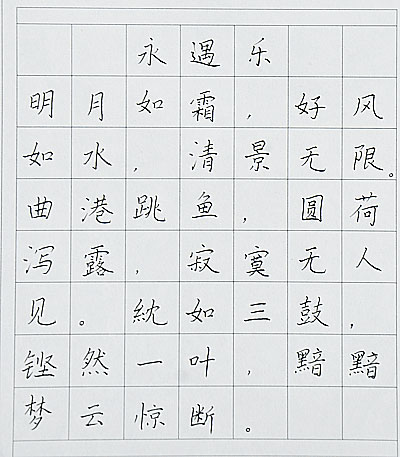 永遇乐
明月如霜，好风
如水，清景无限。
曲港跳鱼，圆荷
泻露，寂寞无人
见。紞如三鼓，
铿然一叶，黯黯
梦云惊断。